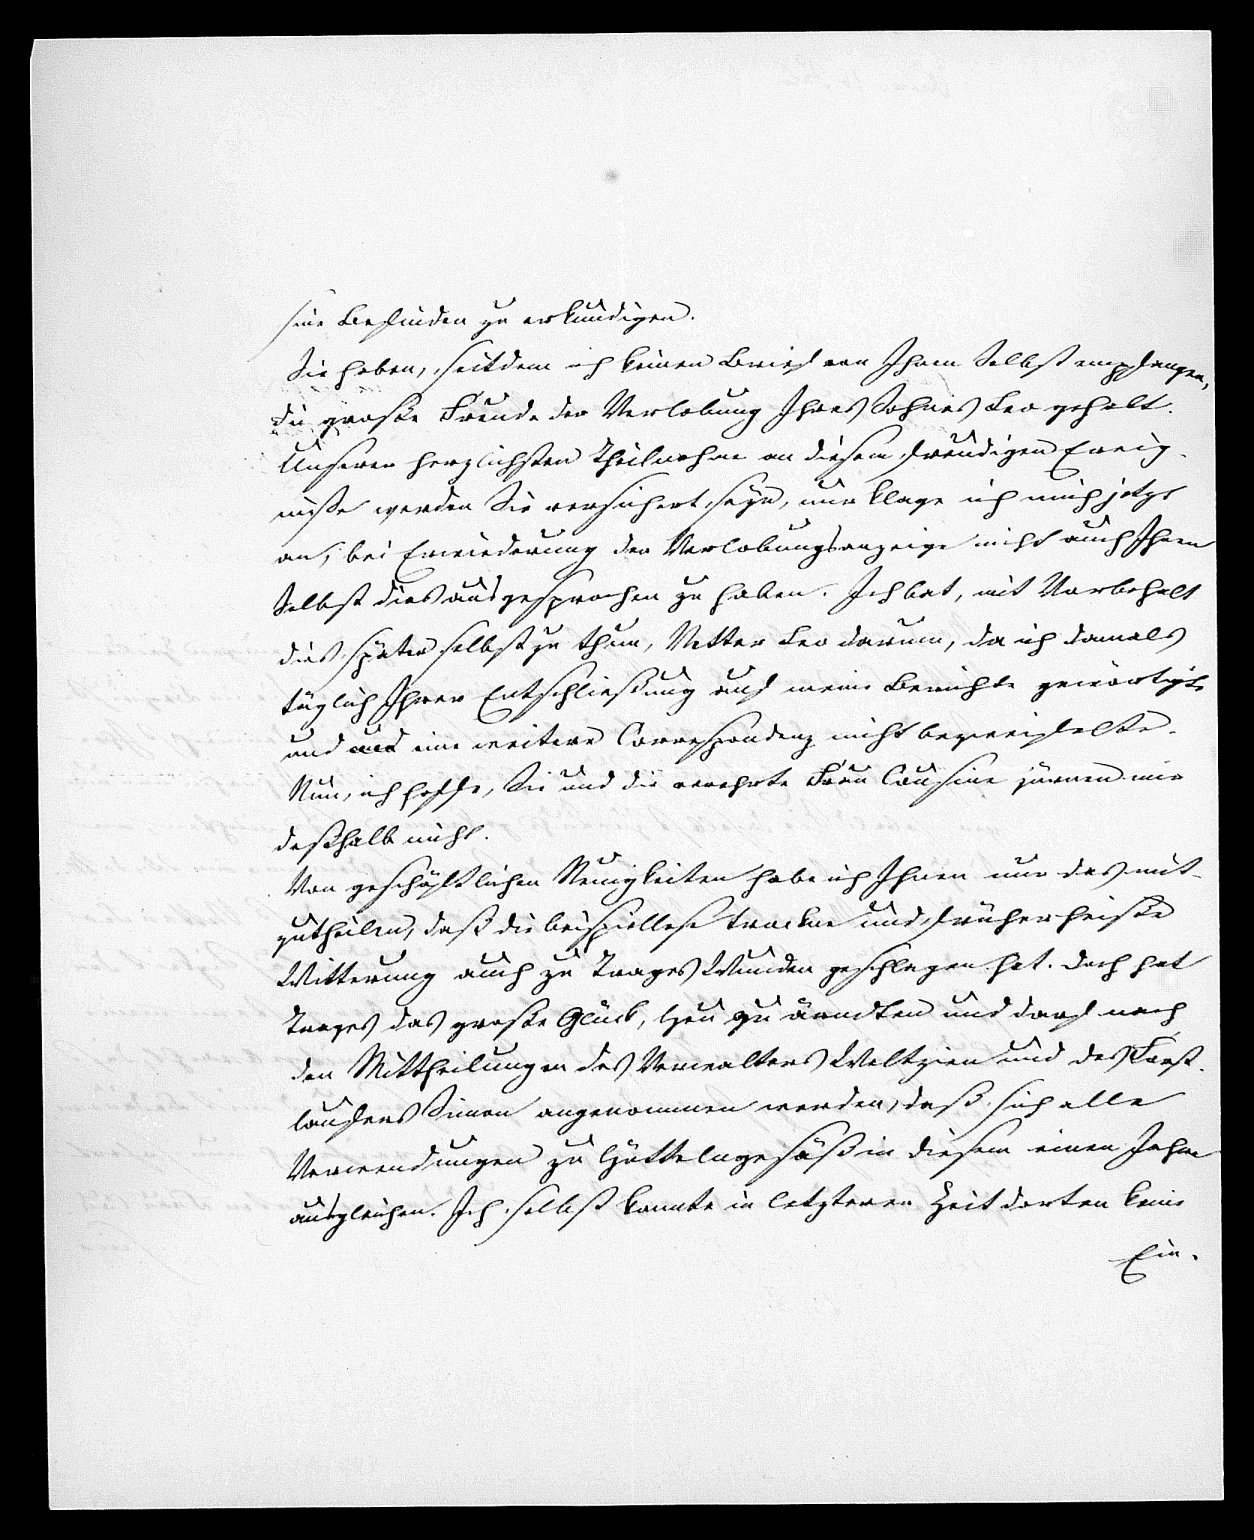 sein Befinden zu erkundigen.
Sie haben, seitdem ich keinen Brief von Ihnen Selbst empfangen,
die große Freude der Verlobung Ihres Sohnes Leo gehabt.
Unserer herzlichsten Theilnahme an diesem freudigen Ereig-
nisse werden Sie versichert seyn, nur klage ich mich jetzt
an, bei Erwiederung der Verlobungsanzeige nicht auch Ihnen
Selbst dies ausgesprochen zu haben. Ich bat, mit Vorbehalt
dies später selbst zu thun, Vetter Leo darum, da ich damals
täglich Ihrer Entschließung auf meine Berichte gewärtigte
und eine weitere Correspondenz nicht bezweifelte.
Nun, ich hoffe, Sie und die verehrte Frau Cousine zürnen mir
deßhalb nicht.
Von geschäftlichen Neuigkeiten habe ich Ihnen nur das mit-
zutheilen, daß die beispiellose trockne und früher heiße
Witterung auch zu Trages Wunden geschlagen hat. Doch hat
Trages das große Glück, Heu zu ärndten und darf nach
den Mittheilungen des Verwalters Weltzien und des Forst-
laufers Simon angenommen werden, daß sich alle
Verwendungen zu Hüttelngesäß in diesem einen Jahre
ausgleichen. Ich selbst konnte in letzterer Zeit dorten keine
Ein-